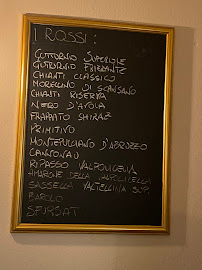 I ROSSI:
GUTTURNIO SUPERIORE
GUTTURNIO FRIZZANTE
CHIANTI CLASSICO
MORELLINO DI SCANSANO
CHIANTI RISERVA
NERO D'AVOLA
FRAPPATO SHIRAZ
PRIMITIVO
MONTEPULCIANO D'ABRUZZO
CANNONAU
RIPASSO VALPOLICELLA
AMARONE DELLA VALPOLICELLA
SASSELLA VALTELLINA SUP.
BAROLO
SFURSAT